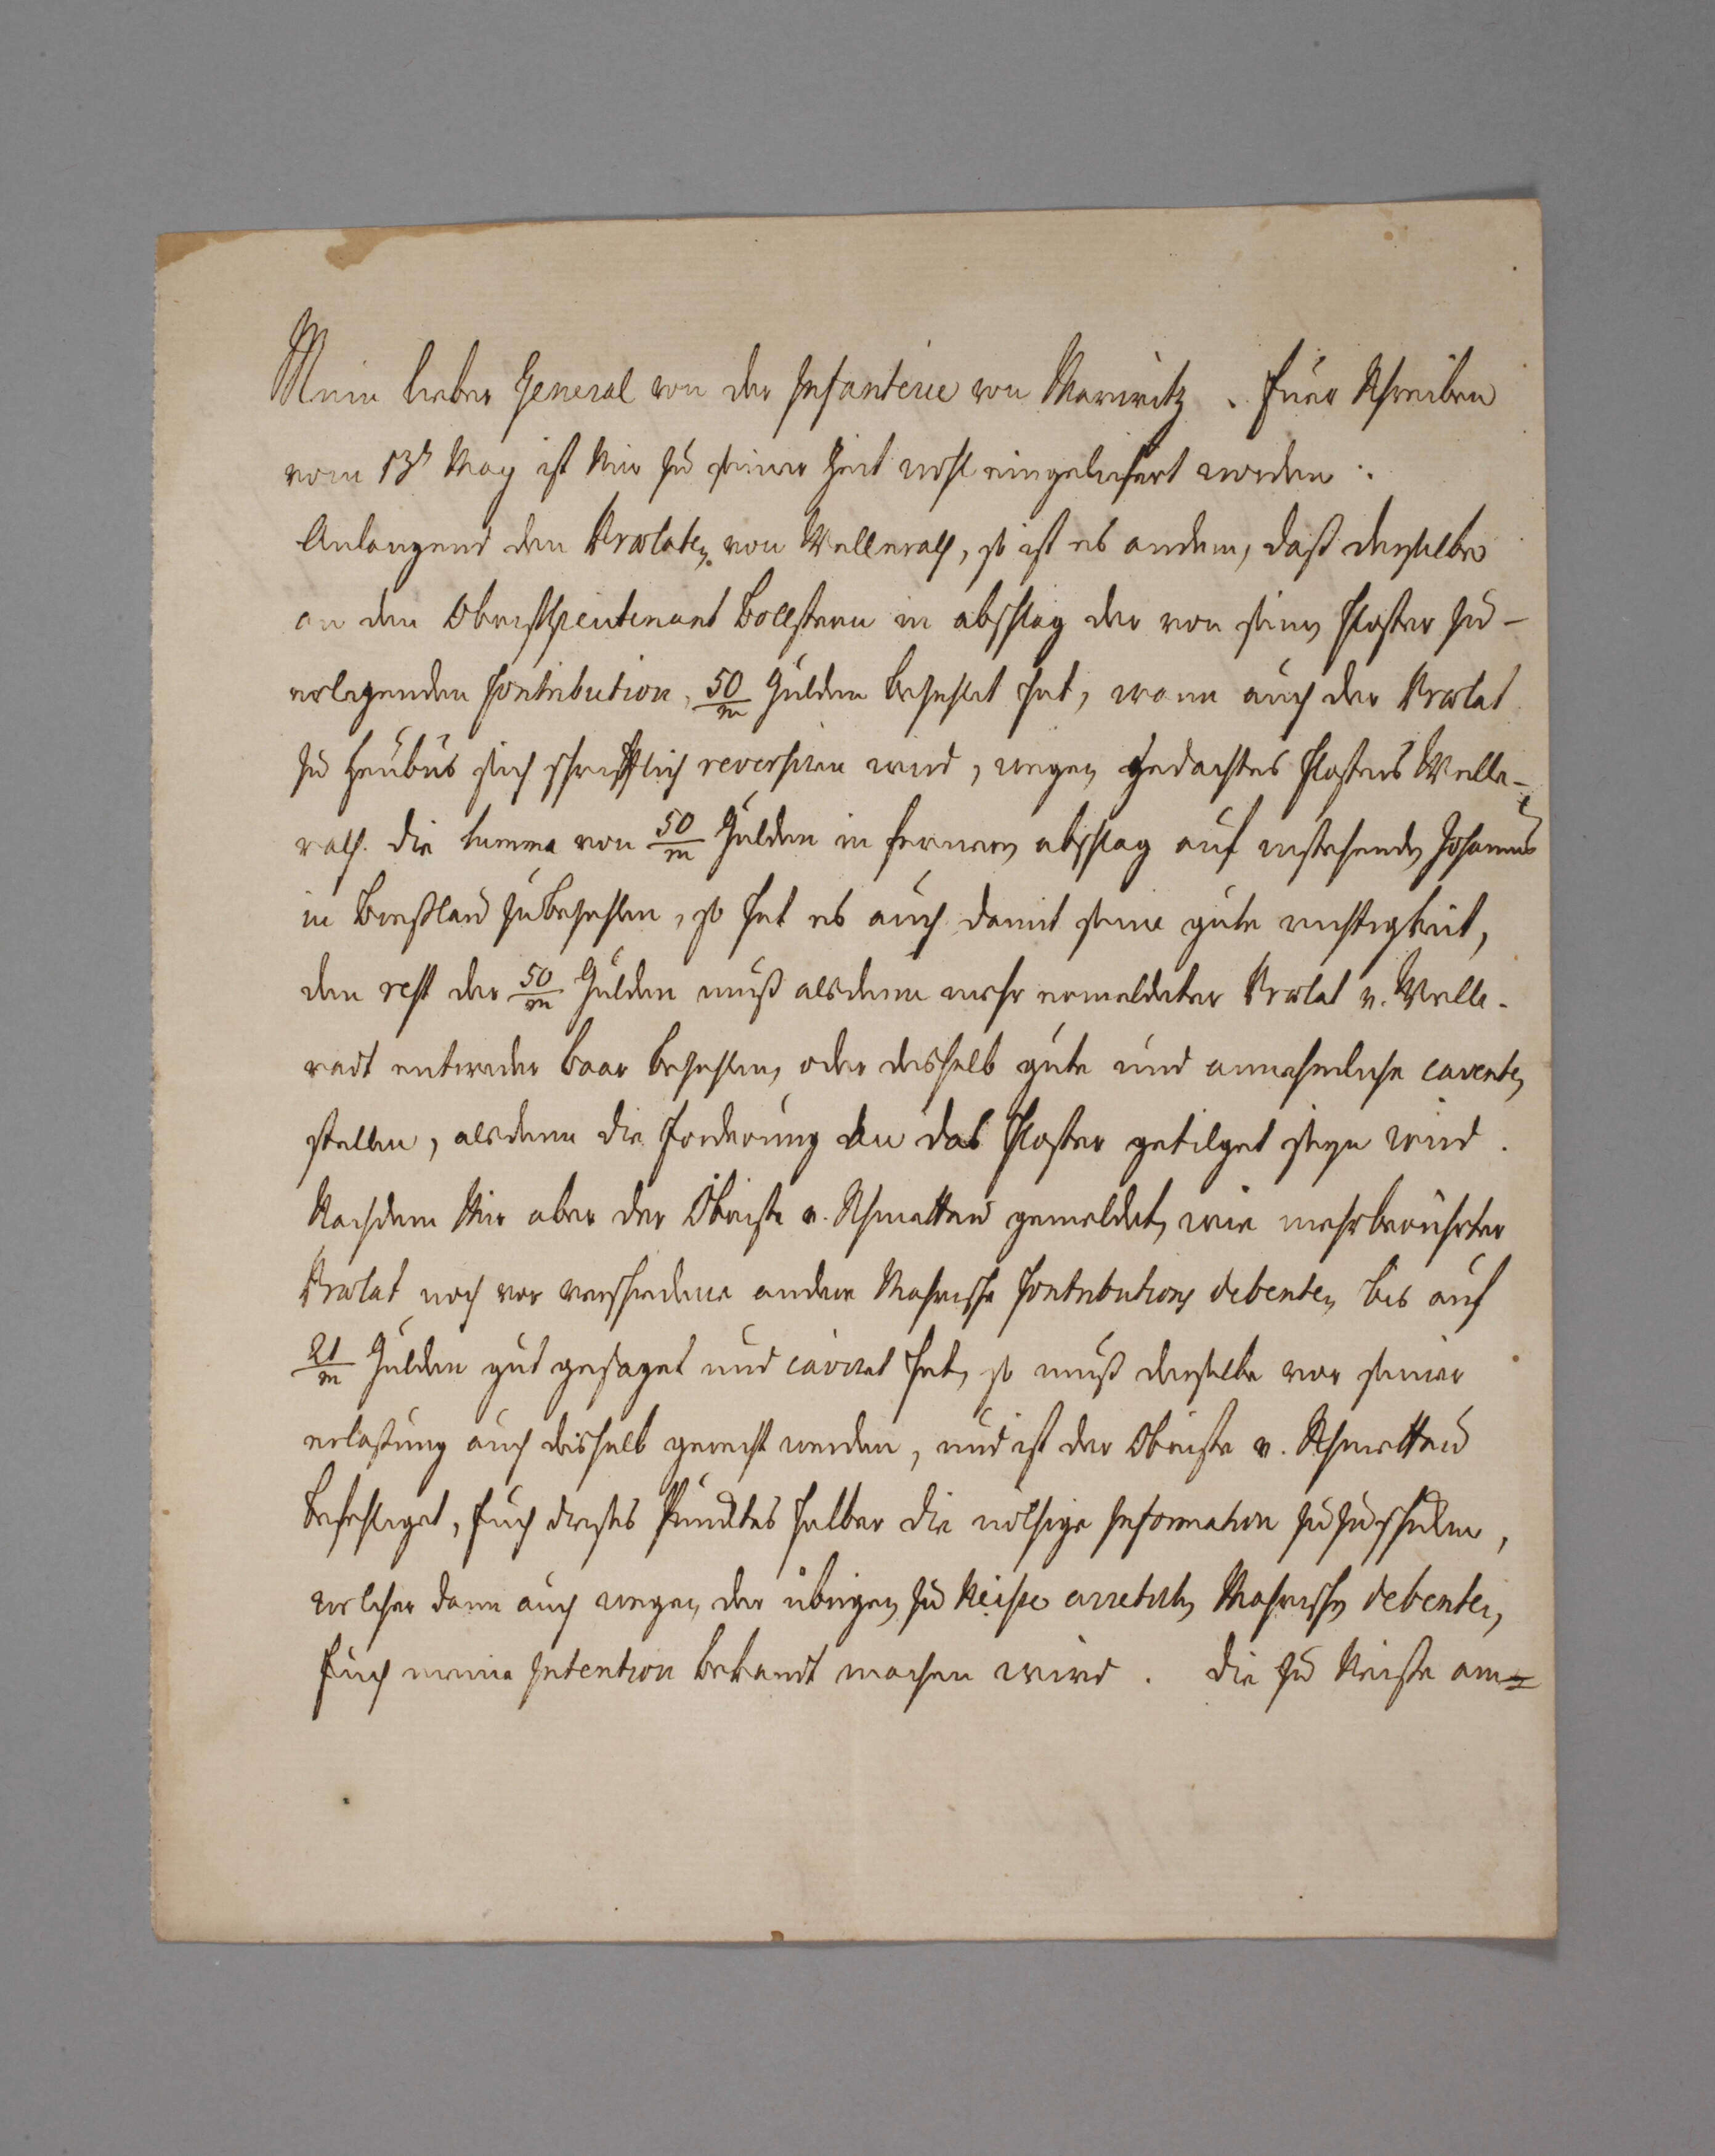 Mein lieber General von der Infanterie von Marwitz. Euer Schreiben
vom 13t May ist Mir zu seiner Zeit wohl eingeliefert worden.
Anlangend den Præelaten von Wellerath, so ist es andem, daß derselbe
an den Obristlieutenant Bollstern in abschlag der von seinen Closter zu-
erlegenden Contribution, 50/m Gulden bezahlet hat, wann auch der Prælat
zu Leubus sich schrifftlich reversiren wird, wegen gedachtes Closters Welle-
rath die Summa von 50/m Gulden in fernern abschlag auf instehenden Johannis
in Breßlau zubezahlen, so hat es auch damit seine gute richtigkeit,
den rest der 50/m Gulden muß alsdenn mehr ermeldeter Prælat v. Welle-
radt entweder baar bezahlen, oder deshalb gute und annehmliche caventen
stellen, alsdenn die Forderung an das Closter getilget seyn wird.
Nachdem Mir aber der Obriste v. Schmettau gemeldet, wie mehrberührter
Prælat noch vor verschiedene andere Mahrische Contributions debenten bis auf
21/m Gulden gut gesaget und caviret hat, so muß derselbe vor seiner
erlaßung auch deshalb gerecht werden, und ist der Obriste v. Schmettau
befehliget, Euch dieses Puncktes halber die nöthige Information zuzuschicken,
welcher dann auch wegen der übrigen zu Neisse arretirten Mahrischen debenten,
Euch meine Intention bekandt machen wird. Die zu Neisse am=